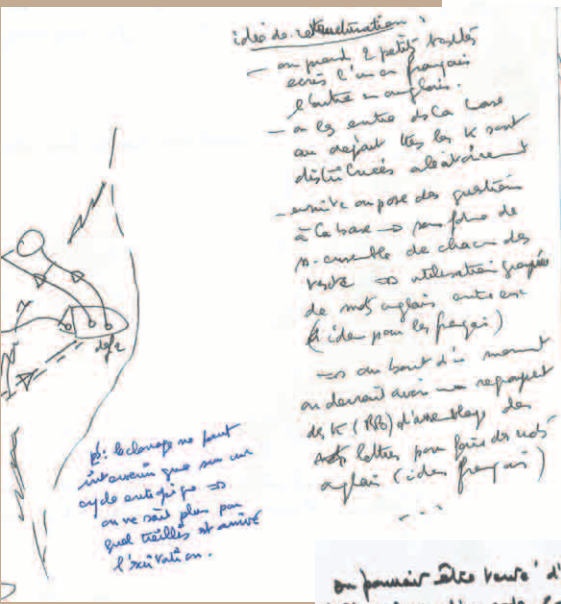 idée de restructuration :
— on prend 2 petits textes
écris l'un en français
l'autre en anglais.
— on les entre ds la base
au départ tts les K sont
distribués aléatoirement
— ensuite on pose des questions
à la base → sous forme de
ss-ensemble de chacun des
texte ⇒ utilisation groupée
de mots anglais entre eux
(idem pour les français)
⇒ au bout d'un moment
on devrait avoir un regroupet
des K (BB) d'assemblage des
lettres pour faire des mots
anglais (idem français)
...
def 2
le clonage ne peut
intervenir que sur un
cycle
on ne sait plus par
quel treillis est arrivé
l'excitation.
on pourrait être tenté d'